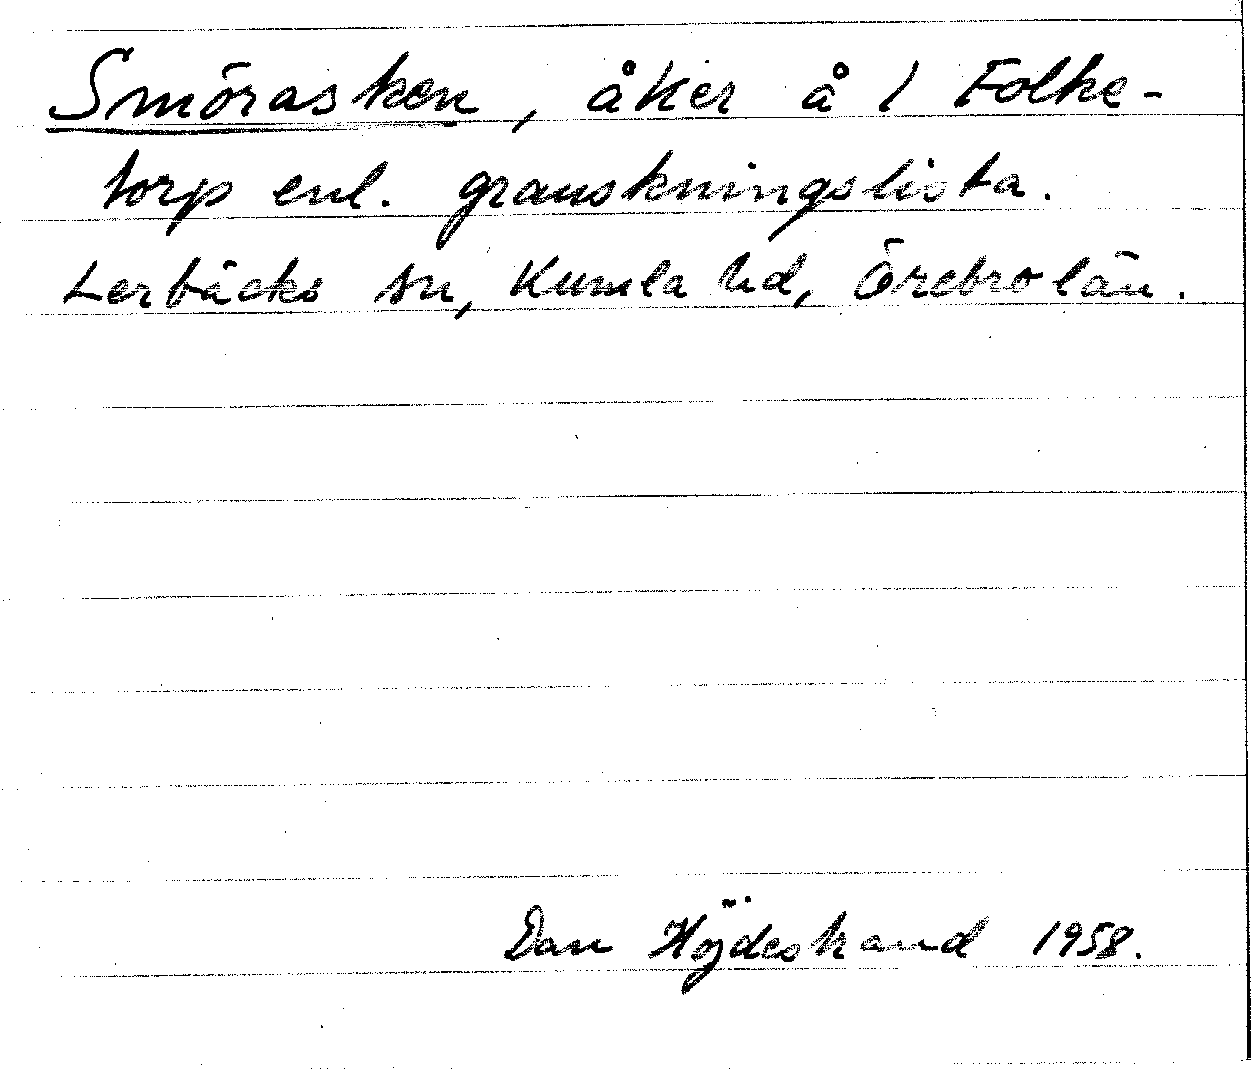 Smörasken, åker å 1 Folke-
torp enl. granskningslista.
Lerbäcks sn, Kumla hd, Örebro län.
Dan Höjdestrand 1958.